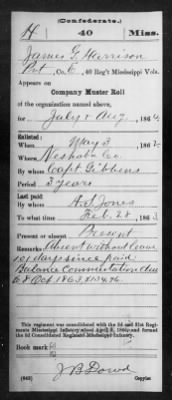 (Confederate.)
H 40 Miss.
James G. Harrison
Pvt, Co. E, 40 Reg't Mississippi Vols.
Appears on
Company Muster Roll
of the organization named above,
for July & Aug, 1864
Enlisted:
When May 3, 1862
Where Neshoba Co.
By whom Capt Gibbens
Period 3 years
Last paid:
By whom A. S. Jones
To what time Feb. 28, 1863
Present or absent Present
Remarks: Absent without leave
101 days since paid
Balance Commutation due
to 8 Oct 1863 $
This regiment was consolidated with the 3d and 31st Regiments
Mississippi Infantry about April 9, 1865, and formed the
3d Consolidated Regiment Mississippi Infantry.
Book mark:
J B Dowd
(642) Copyist.